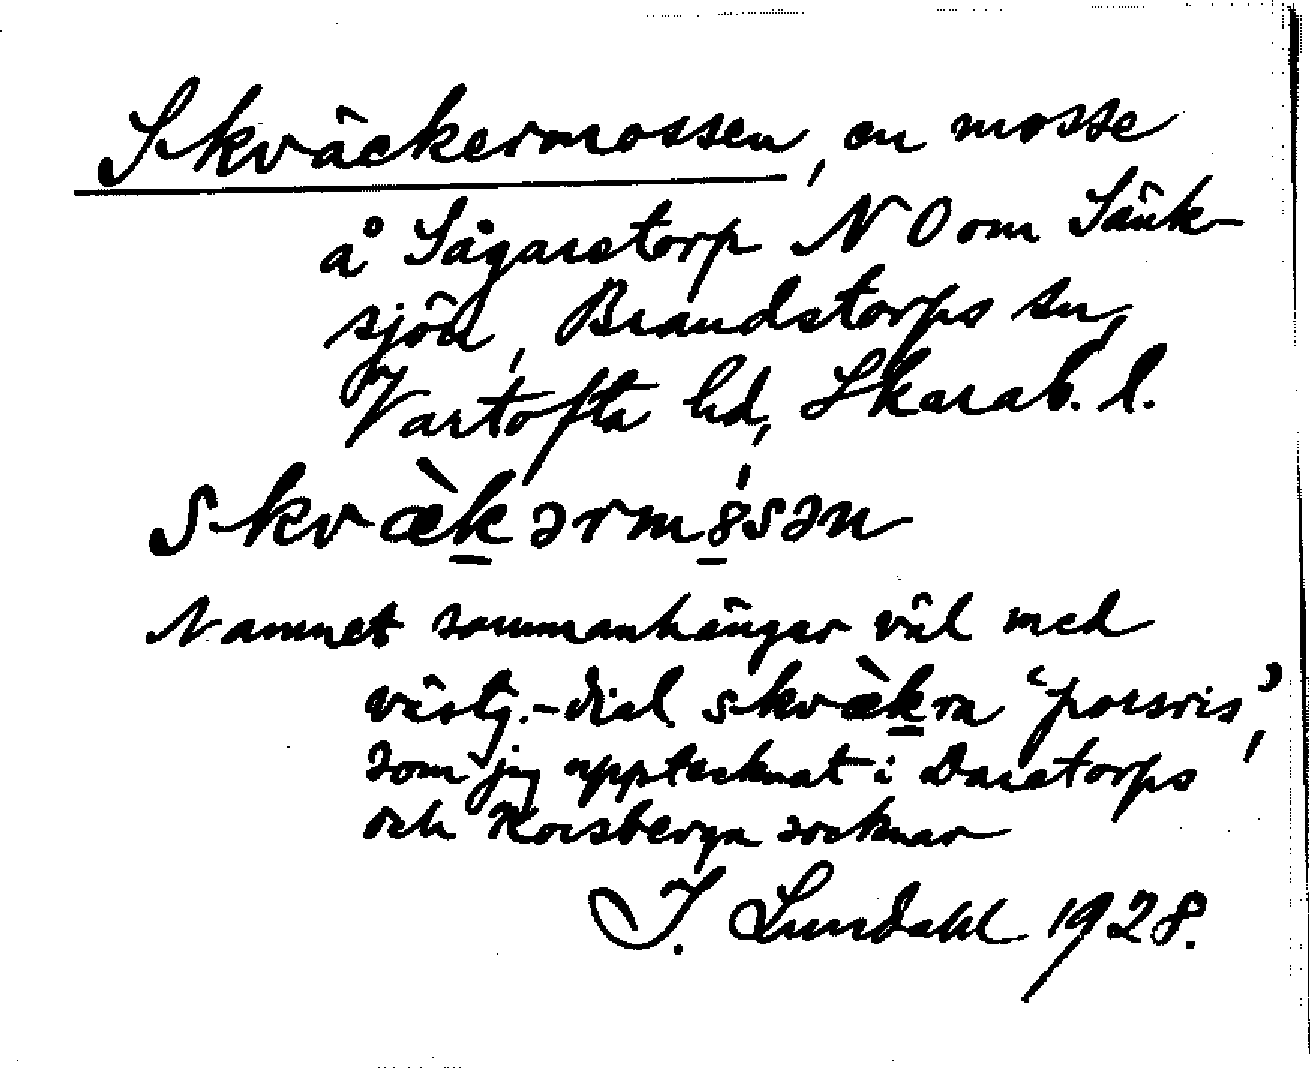 Skväckermossen, en mosse
å Sågaretorp NO om Sänk-
sjön, Brandstorps sn,
Vartofta hd, Skarab. l.
skvæ̀k̲ərmo̲̍sən
Namnet sammanhänger väl med
västg.-dial skvæ̀k̲ra 'porsris',
som jag upptecknat i Daretorps
och Korsberga socknar
I. Lundahl 1928.